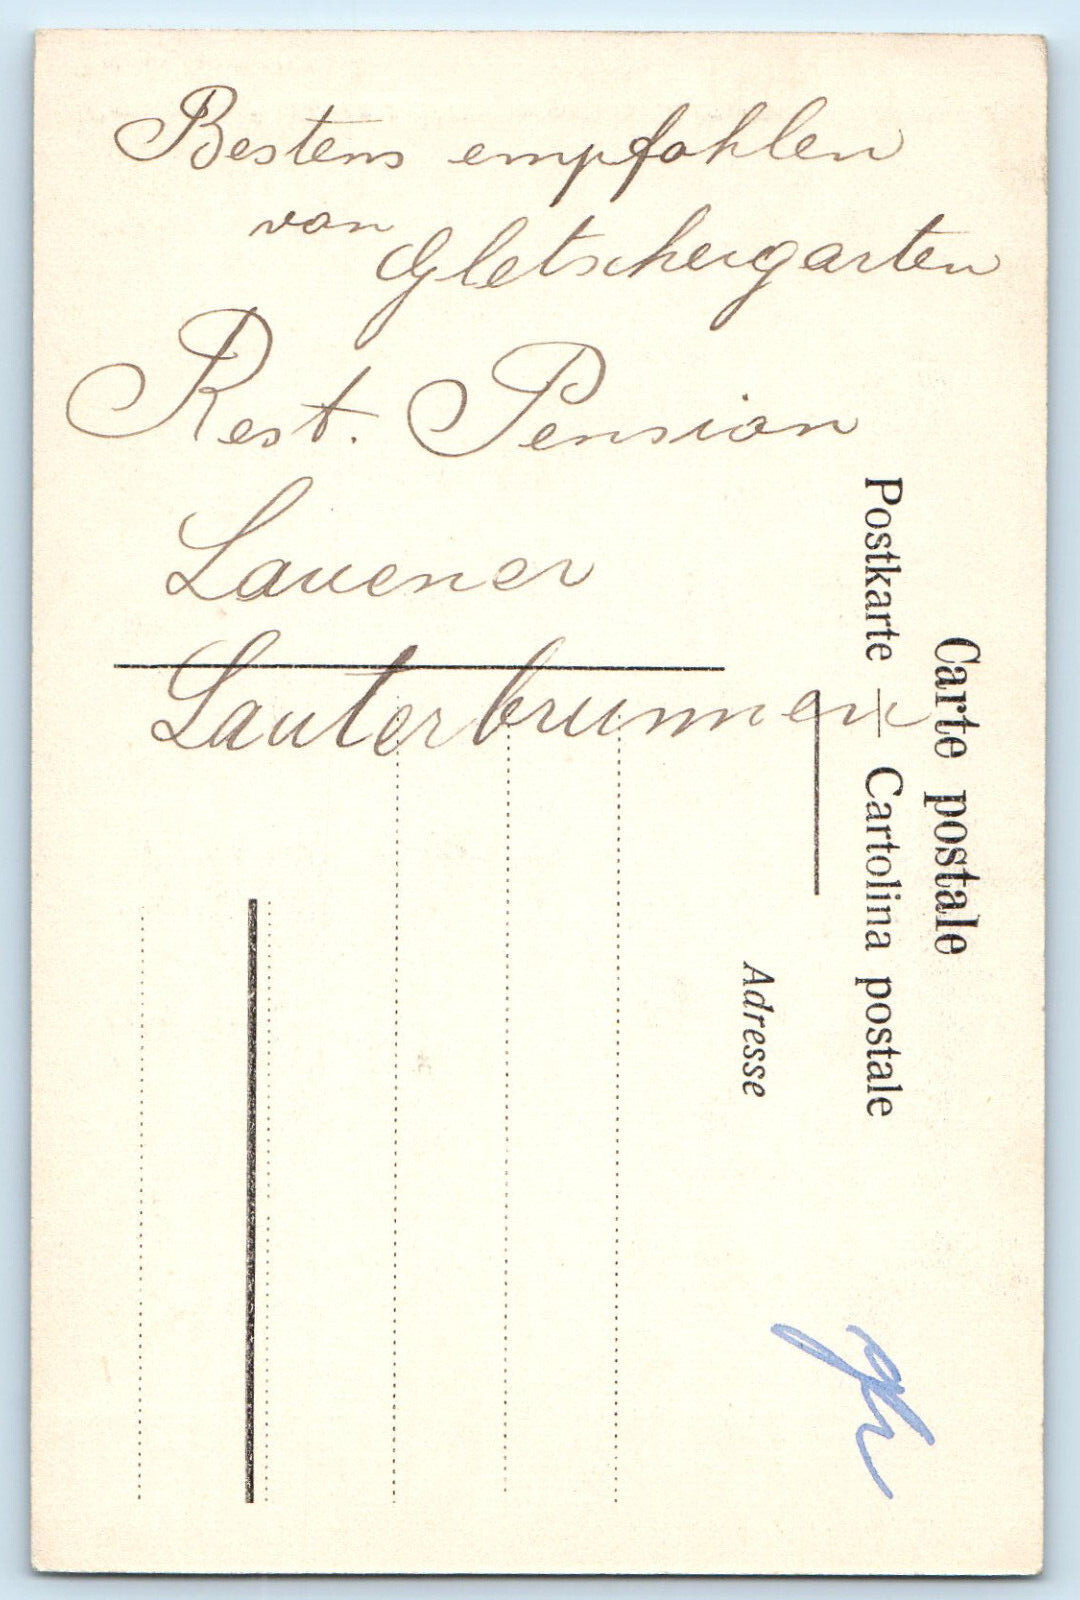 Bestens empfohlen
von Gletschergarten
Rest. Pension
Lauener
Lauterbrunnen
Carte postale
Postkarte — Cartolina postale
Adresse